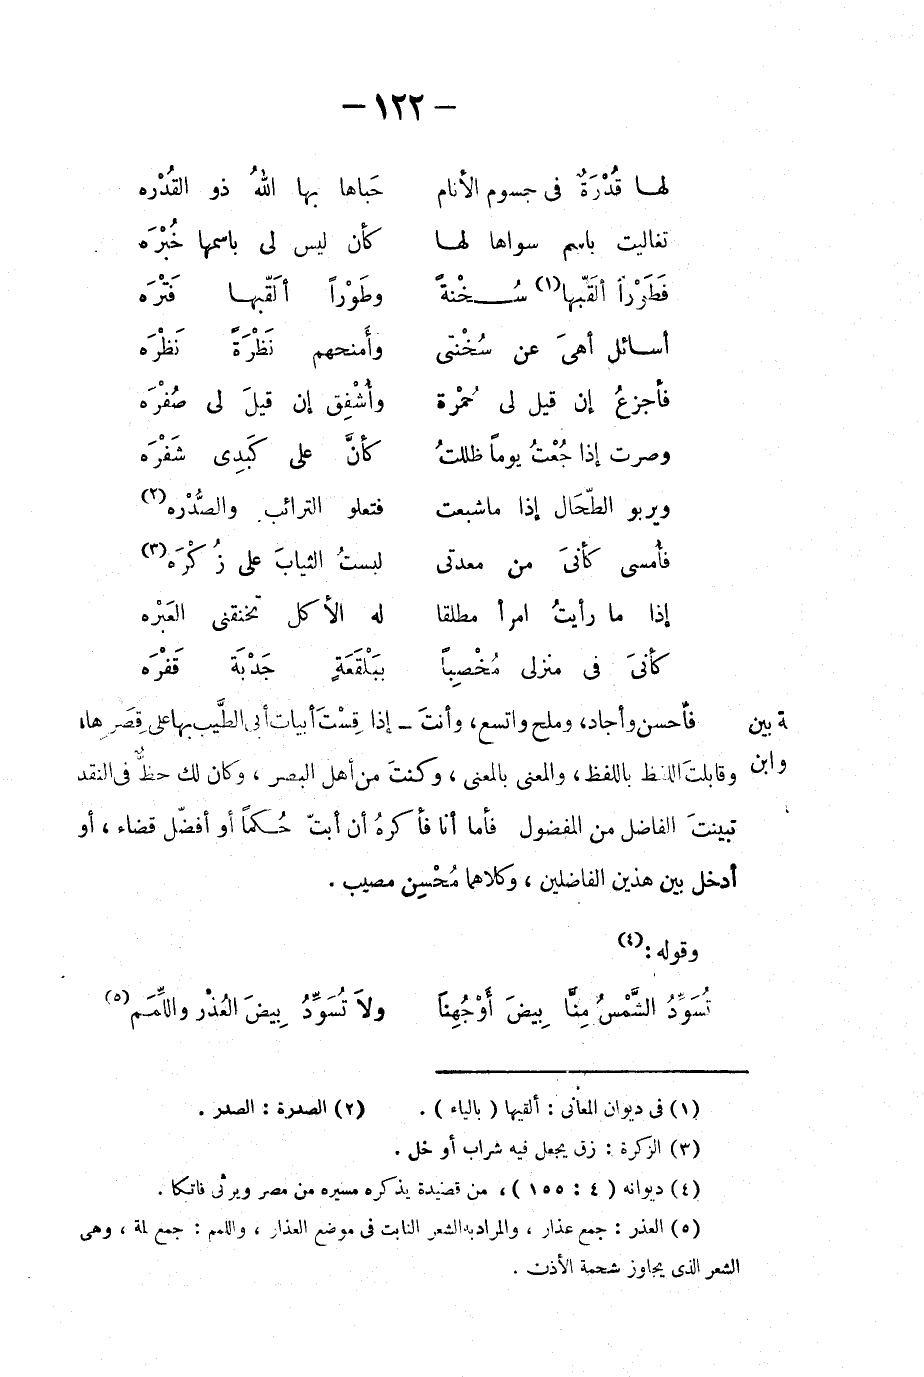 — ١٢٢ —
لها قُدْرَةٌ فى جسوم الأنام حَباها بها اللهُ ذو القُدْره
تغاليت باسم سواها لها كأن ليس لى باسمها خُبْرَه
فَطَوْراً ألقّبها(١) سُخْنةً وطَوْراً ألقّبها فَتْرَه
أسائل أهىَ عن سُخْنتى وأَمنحهم نَظْرَةً نَظْرَه
فأجزعُ إن قيل لى حُمْرة وأُشْفِق إن قيلَ لى صُفْرَه
وصرت إذا جُعْتُ يوماً ظللتُ كأنَّ على كَبَدِى شَفْرَه
ويربو الطّحَال إذا ماشبعت فتعلو الترائب والصُّدْره(٢)
فأُمسى كأنىَ من معدتى لبستُ الثيابَ على زُكْرَه(٣)
إذا ما رأيتُ امرأ مطلقا له الأكل تخنقنى العَبْره
كأنىَ فى منزلى مُخْصِباً ببَلْقَعَةٍ جَدْبَة قَفْرَه
فأحسن وأجاد، وملح واتسع، وأنتَ – إذا قِسْتَ أبيات أبى الطَّيب بها على قِصَرِها، ة بين
وقابلتَ اللفظ باللفظ، والمعنى بالمعنى، وكنتَ من أهل البصر، وكان لك حظٌّ فى النقد وابن
تبينتَ الفاضل من المفضول فأما أنا فأكرهُ أن أبتّ حُكماً أو أفضّل قضاء، أو
أدخل بين هذين الفاضلين، وكلاهما مُحْسِن مصيب.
وقوله:(٤)
تُسَوِّدُ الشَّمْسُ مِنَّا بِيضَ أَوْجُهِنَا ولاَ تُسَوِّدُ بِيضَ العُذْرِ واللِّمَم(٥)
(١) فى ديوان المعانى: ألقيها (بالياء). (٢) الصدرة: الصدر.
(٣) الزكرة: زق يجعل فيه شراب أو خل.
(٤) ديوانه (٤: ١٥٥)، من قصيدة يذكره مسيره من مصر ويرثى فاتكا.
(٥) العذر: جمع عذار، والمراد به الشعر النابت فى موضع العذار، واللمم: جمع لمة، وهى
الشعر الذى يجاوز شحمة الأذن.